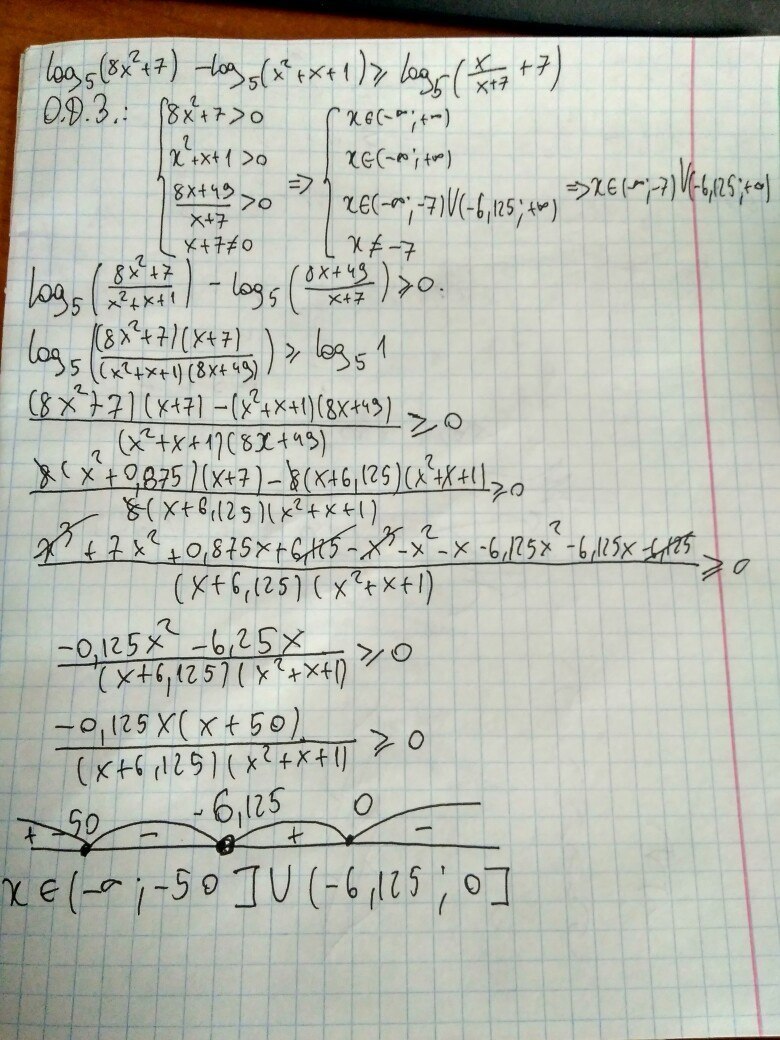 log₅(8x²+7) - log₅(x²+x+1) ≥ log₅(x/(x+7) + 7)
О.Д.З.: { 8x²+7>0 ; x²+x+1>0 ; (8x+49)/(x+7) >0 ; x+7≠0 ⇒ { x∈(-∞;+∞) ; x∈(-∞;+∞) ; x∈(-∞;-7)∪(-6,125;+∞) ; x≠-7 ⇒ x∈(-∞;-7)∪(-6,125;+∞)
log₅((8x²+7)/(x²+x+1)) - log₅((8x+49)/(x+7)) ≥ 0.
log₅((8x²+7)(x+7)/((x²+x+1)(8x+49))) ≥ log₅1
((8x²+7)(x+7) - (x²+x+1)(8x+49))/((x²+x+1)(8x+49)) ≥ 0
(8(x²+0,875)(x+7) - 8(x+6,125)(x²+x+1))/(8(x+6,125)(x²+x+1)) ≥ 0
(x³ + 7x² + 0,875x + 6,125 - x³ - x² - x - 6,125x² - 6,125x - 6,125)/((x+6,125)(x²+x+1)) ≥ 0
(-0,125x² - 6,25x)/((x+6,125)(x²+x+1)) ≥ 0
(-0,125x(x+50))/((x+6,125)(x²+x+1)) ≥ 0
-50 -6,125 0
+ - + -
x∈(-∞;-50]∪(-6,125;0]